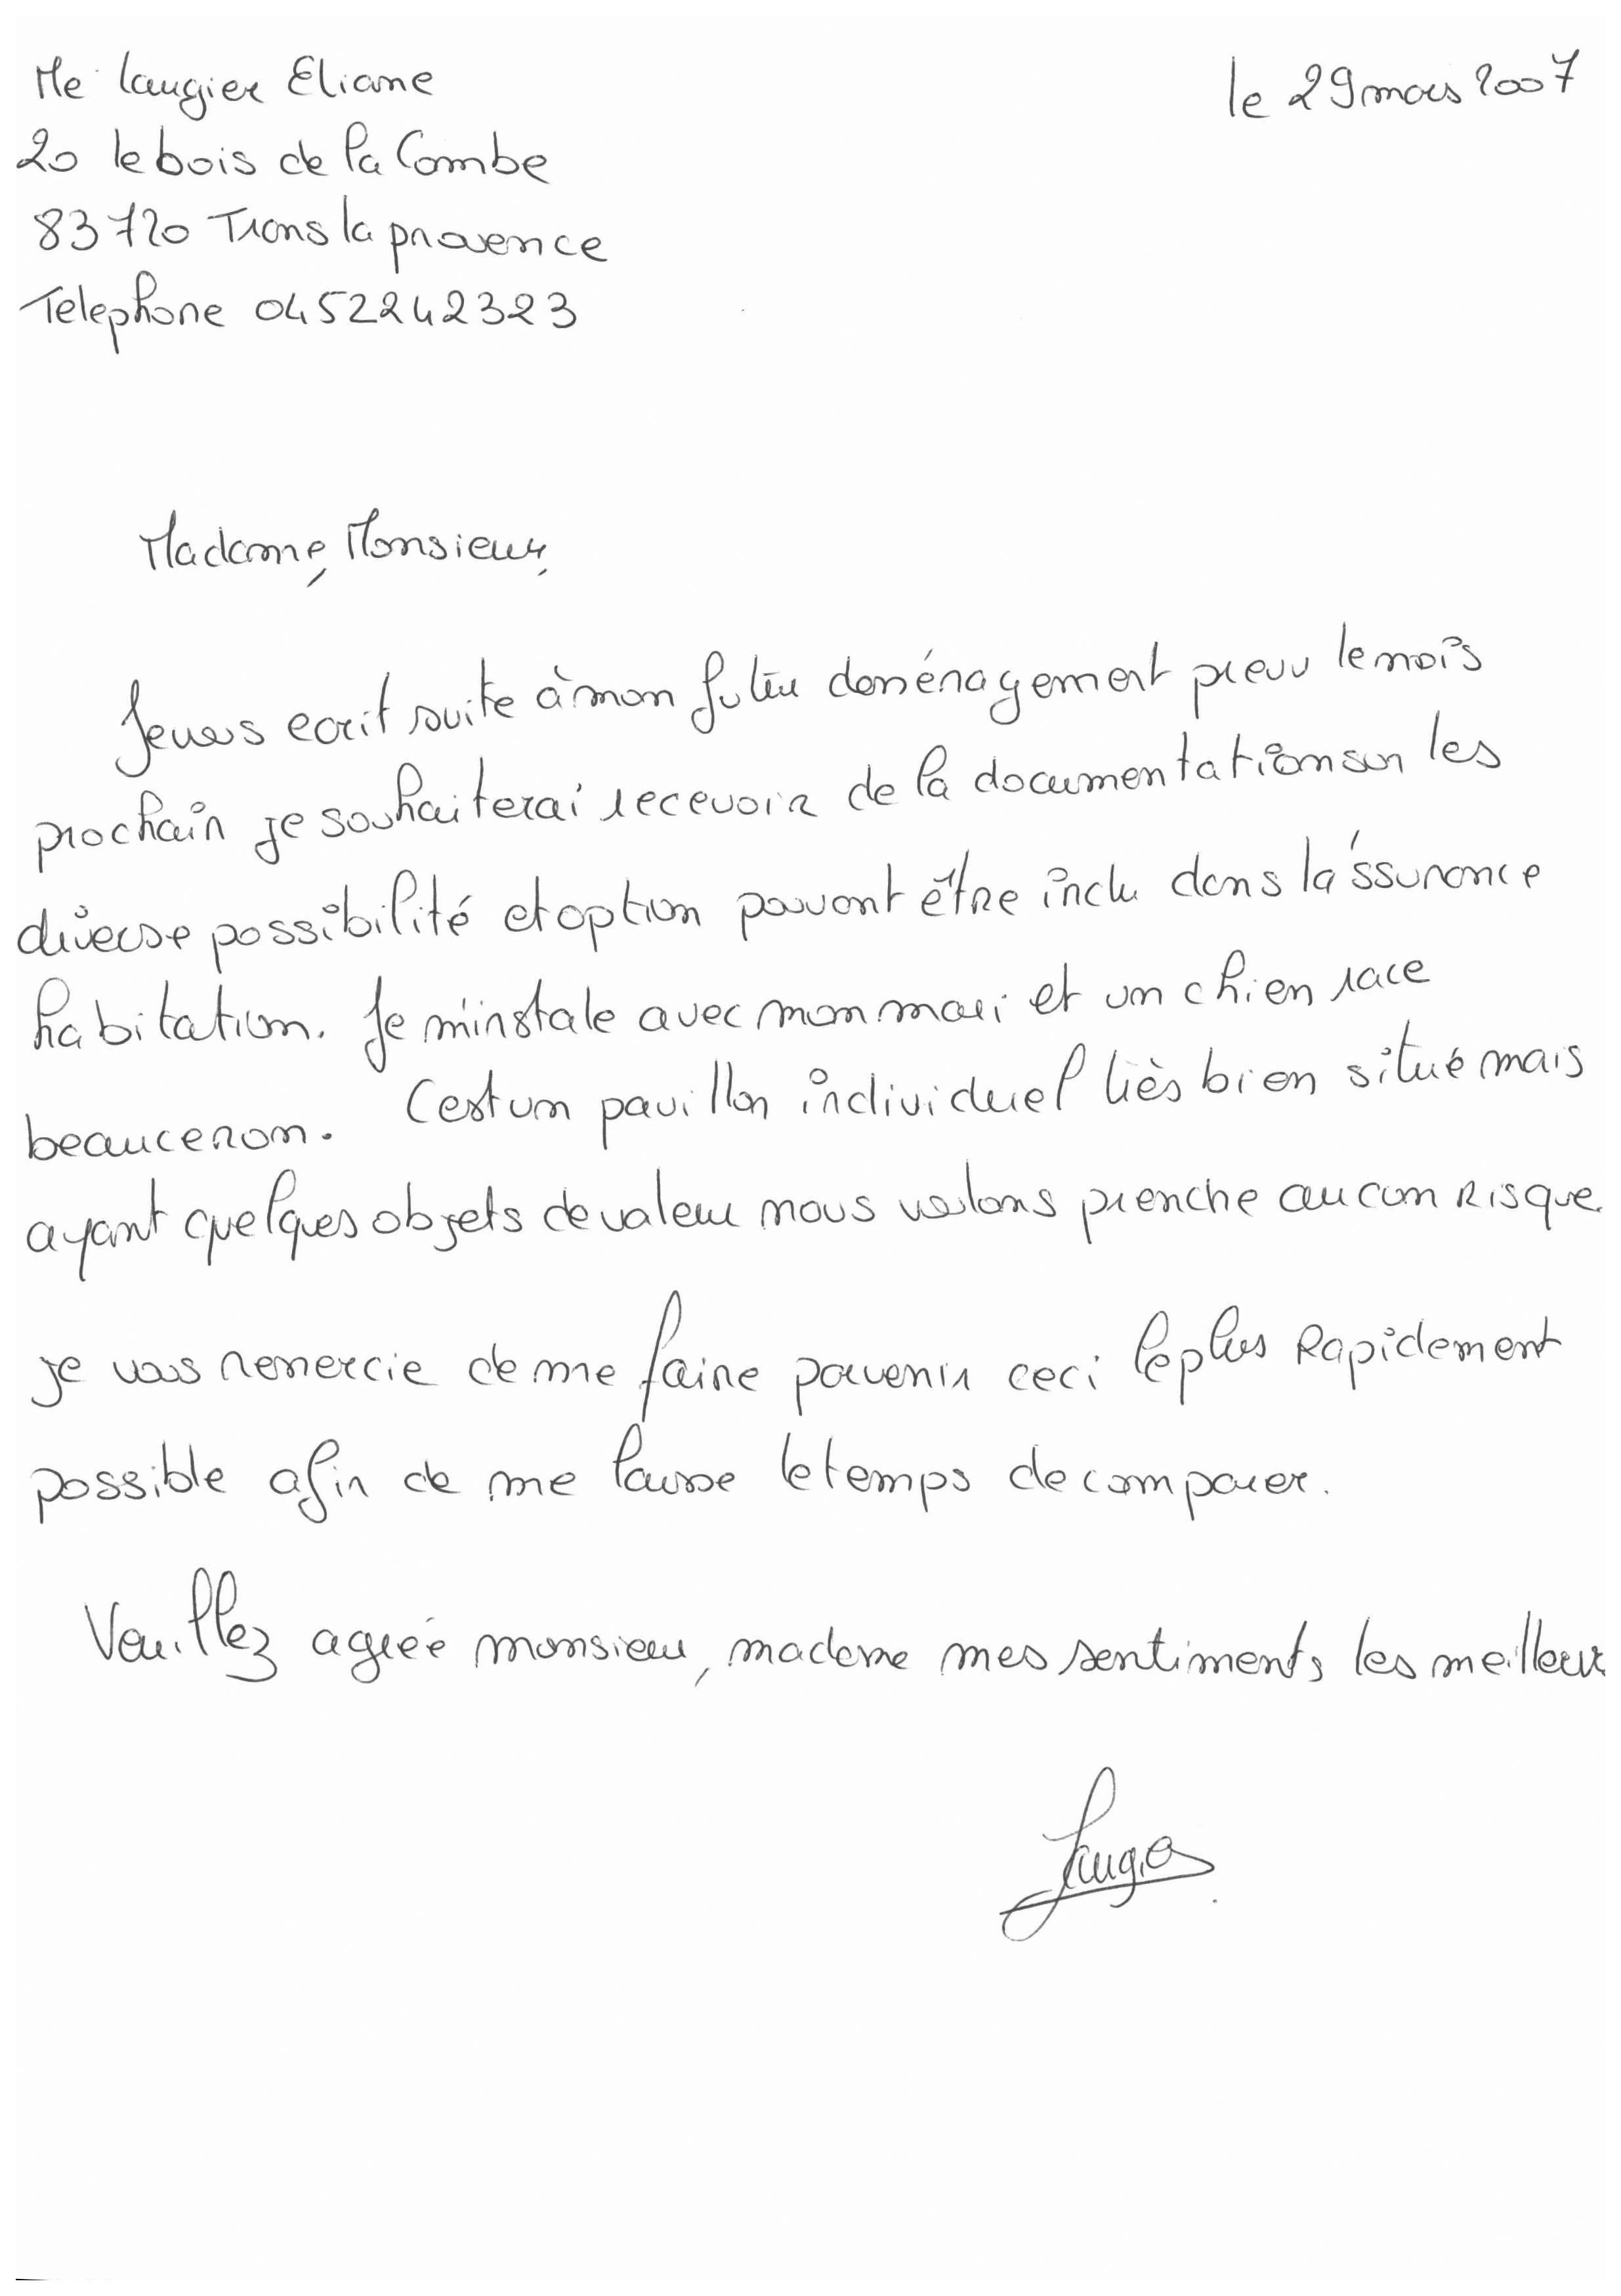 Me Laugier Eliane
le 29 mars 2007
20 le bois de la Combe
83720 Trans la provence
Telephone 0452242323
Madame, Monsieur,
Je vous ecrit suite à mon futur déménagement prevu le mois
prochain je souhaiterai recevoir de la documentation sur les
diverse possibilité et option pouvant être inclu dans la'ssurance
habitation. Je m'instale avec mon mari et un chien race
beauceron. C'est un pavillon individuel très bien situé mais
ayant quelques objets de valeur nous voulons prendre aucun risque.
je vous remercie de me faire parvenir ceci le plus rapidement
possible afin de me laisse le temps de comparer.
Veuillez agréé monsieur, madame mes sentiments les meilleur
Laugier